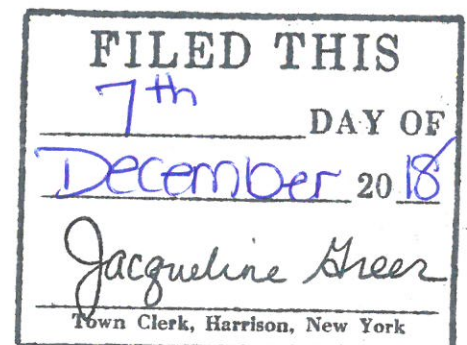 FILED THIS
7th DAY OF
December 20 18
Jacqueline Greer
Town Clerk, Harrison, New York